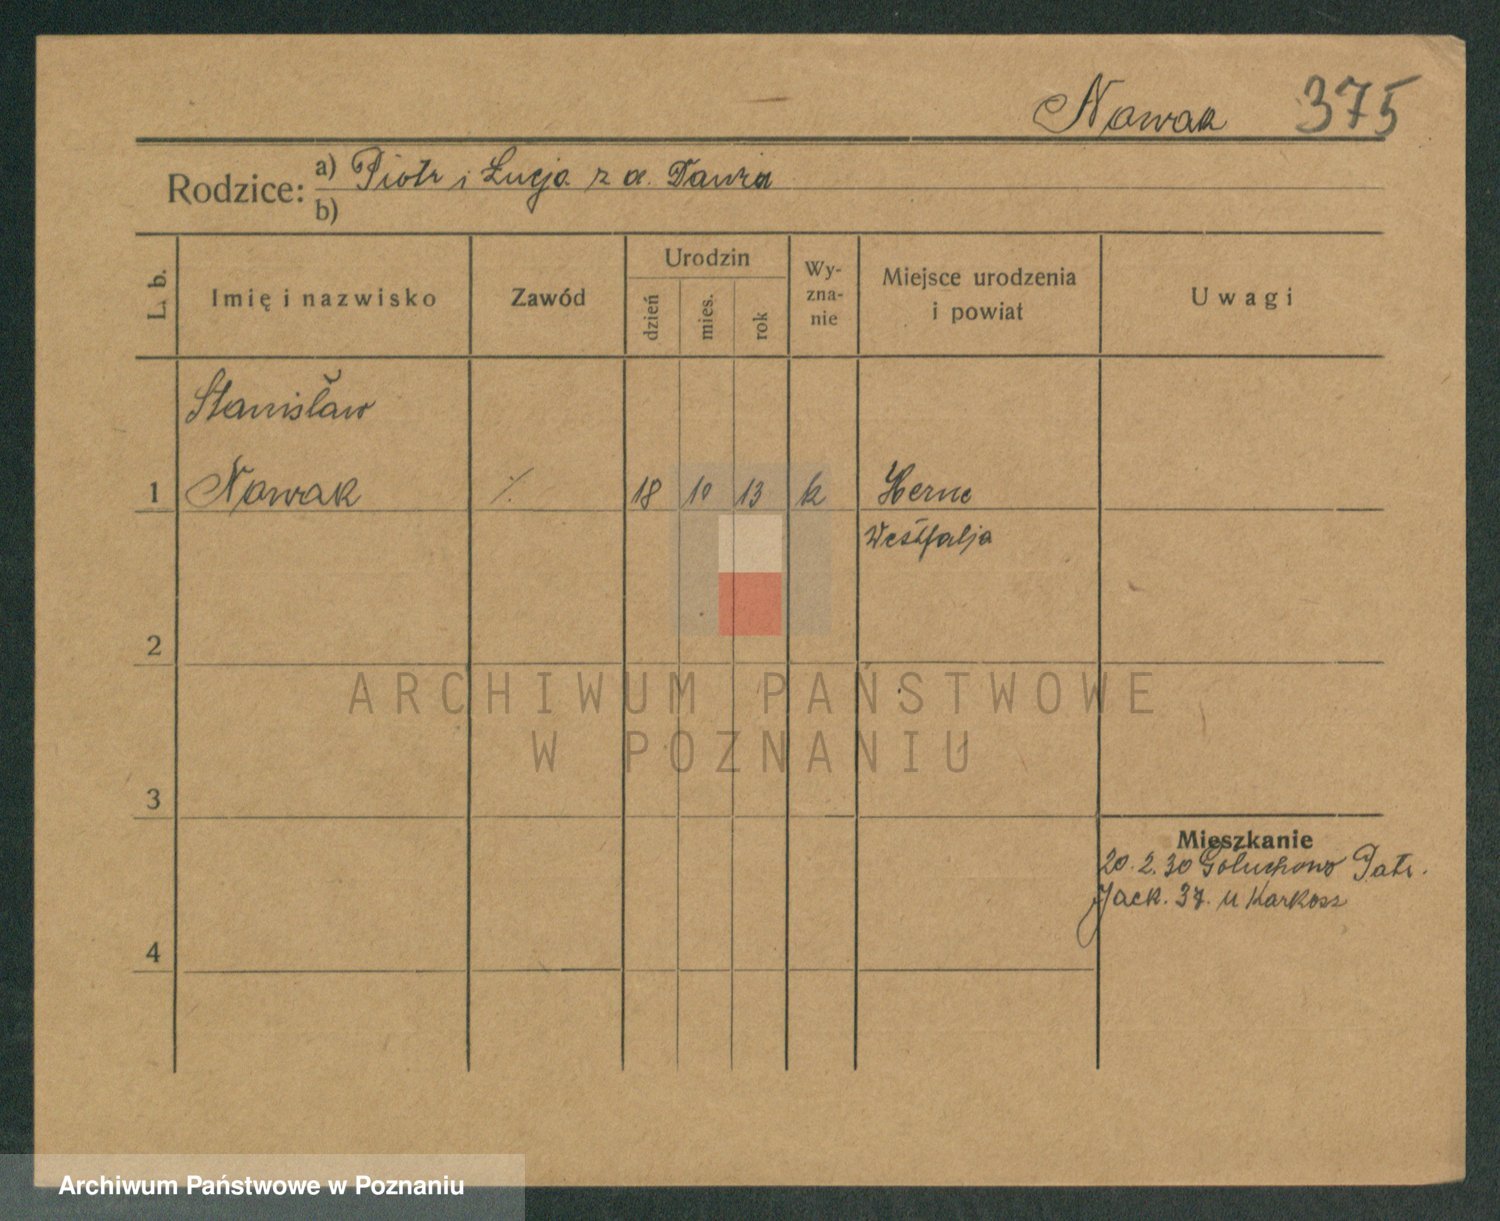 Nowak 375
Rodzice: a) Piotr i Łucja z d.
b)
L. b. Imię i nazwisko Zawód Urodzin dzień mies. rok Wy-zna-nie Miejsce urodzenia i powiat Uwagi
Stanisław
1 Nowak ٪ 18 10 13 k Herne
Westfalja
2
ARCHIWUM PAŃSTWOWE
W POZNANIU
3
Mieszkanie
20.2.30 Gołuchowo Patr.
Jack. 37. u Karkosz
4
Archiwum Państwowe w Poznaniu